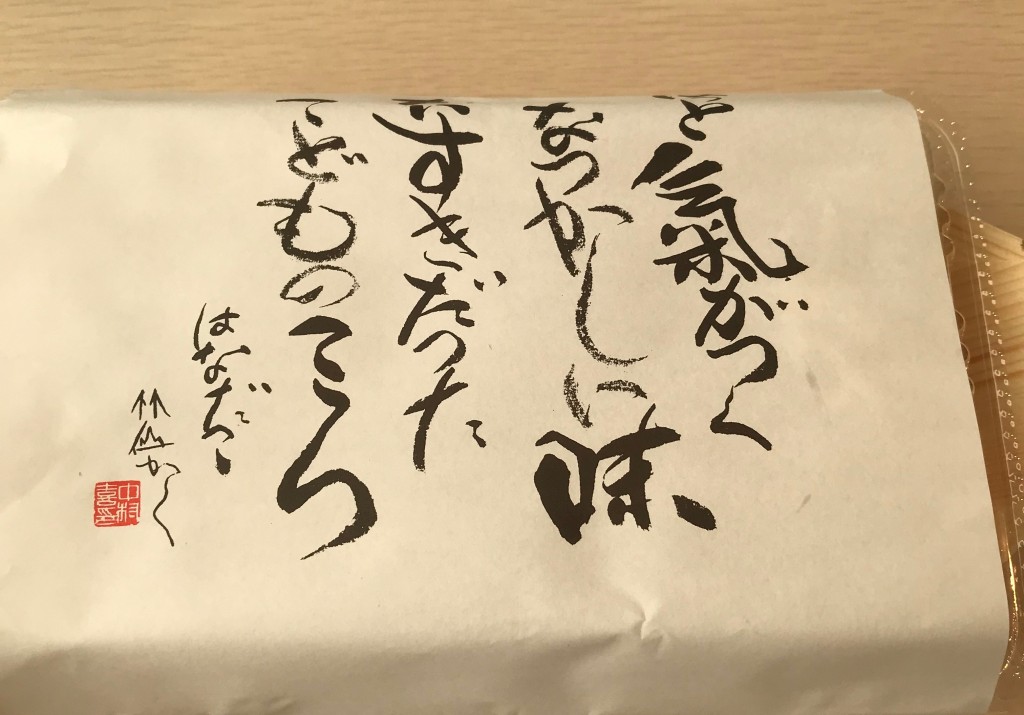 と氣がつく
なつかしい味
いすきだった
こどものころ
はなだ
かく
中村